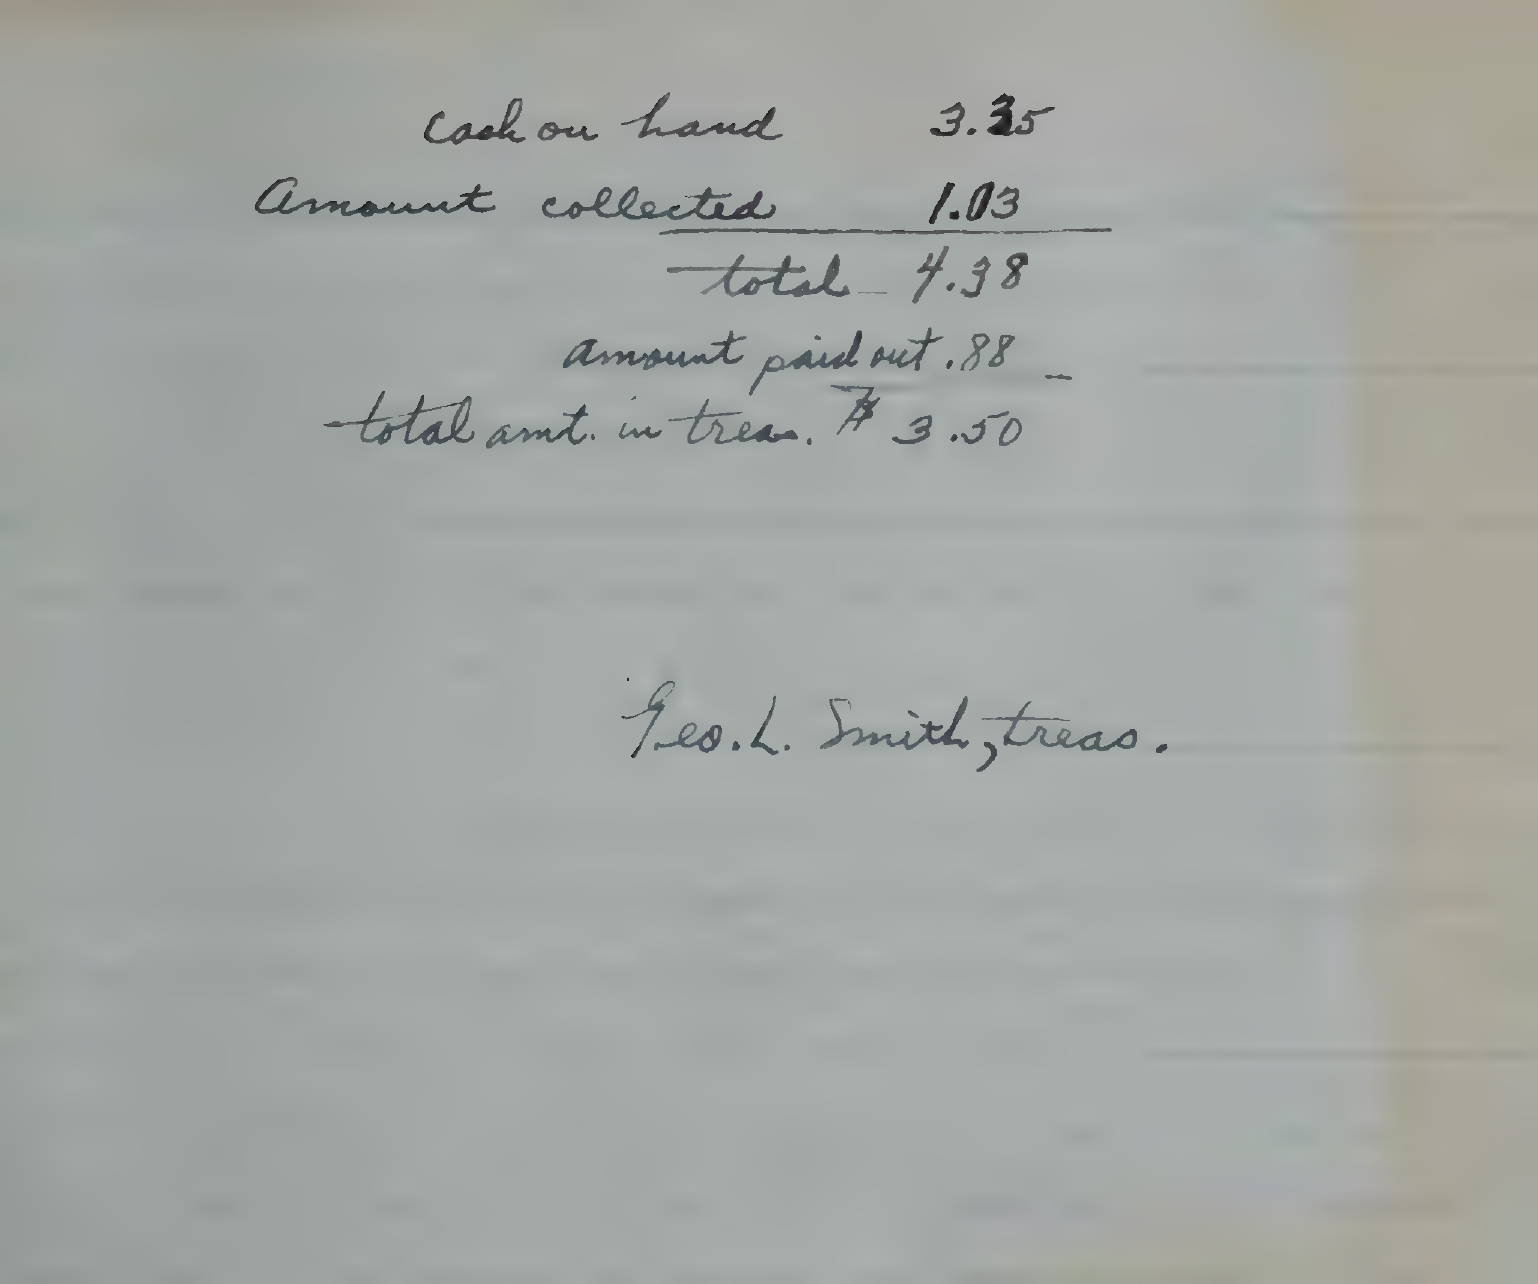 Cash on hand 3.35
Amount collected 1.03
total 4.38
amount paid out .88
total amt. in treas. $ 3.50
Geo. L. Smith, treas.